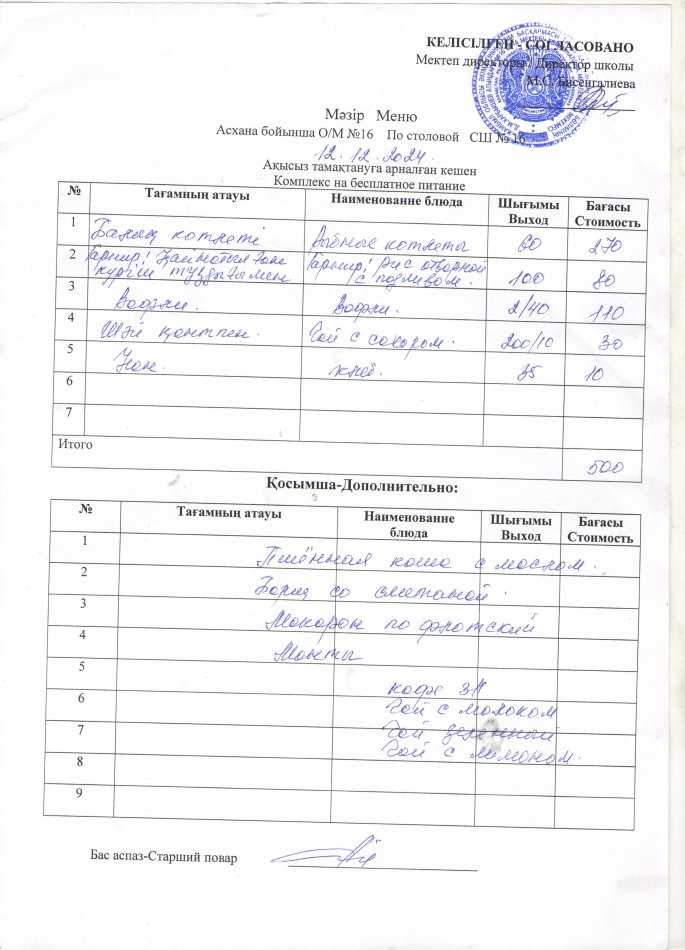 КЕЛІСІЛГЕН - СОГЛАСОВАНО
Мектеп директоры Директор школы
М.С. Бисенгалиева
Мәзір Меню
Асхана бойынша О/М №16 По столовой СШ № 16
12.12.2024.
Ақысыз тамақтануға арналған кешен
Комплекс на бесплатное питание
№ Тағамның атауы Наименованне блюда Шығымы Выход Бағасы Стоимость
1 Балық котлеті Рыбные котлеты 60 270
2 Гарнир: Қайнатылған күріш тұздығымен Гарнир: рис отварной с подливом. 100 80
3 Вафли. Вафли. 2/40 110
4 Шәй қантпен. Чай с сахаром. 200/10 30
5 Нан. хлеб. 35 10
6
7
Итого 500
Қосымша-Дополнительно:
№ Тағамның атауы Наименованне блюда Шығымы Выход Бағасы Стоимость
1 Пшённая каша с маслом.
2 Борщ со сметаной.
3 Макарон по флотский
4 Манты
5 кофе 3/1
6 Чай с молоком
7 Чай зеленный
Чай с лимоном.
8
9
Бас аспаз-Старший повар